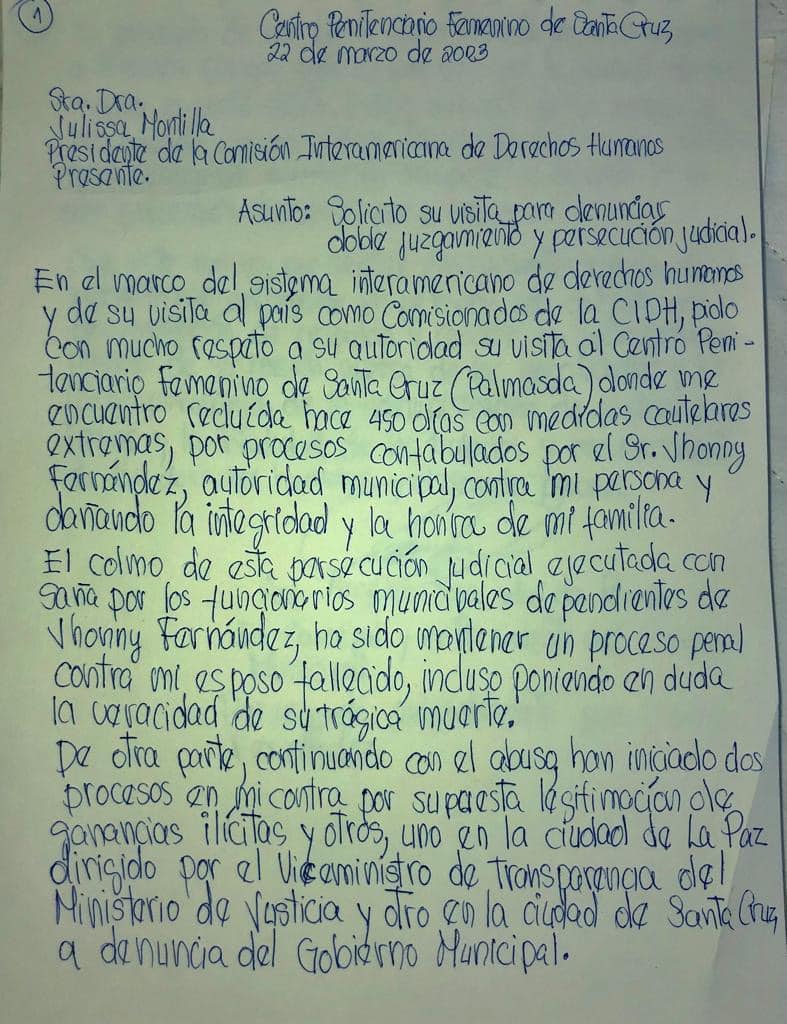 1
Centro Penitenciario Femenino de Santa Cruz
22 de marzo de 2023
Sra. Dra.
Julissa Montilla
Presidente de la Comisión Interamericana de Derechos Humanos
Presente.
Asunto: Solicito su visita para denunciar
doble juzgamiento y persecución judicial.
En el marco del sistema interamericano de derechos humanos
y de su visita al país como Comisionados de la CIDH, pido
con mucho respeto a su autoridad su visita al Centro Peni-
tenciario Femenino de Santa Cruz (Palmasola) donde me
encuentro recluída hace 450 días con medidas cautelares
extremas, por procesos contabulados por el Sr. Jhonny
Fernández, autoridad municipal, contra mi persona y
dañando la integridad y la honra de mi familia.
El colmo de esta persecución judicial ejecutada con
saña por los funcionarios municipales dependientes de
Jhonny Fernández, ha sido mantener un proceso penal
contra mi esposo fallecido, incluso poniendo en duda
la veracidad de su trágica muerte.
De otra parte, continuando con el abuso, han iniciado dos
procesos en mi contra por supuesta legitimación de
ganancias ilícitas y otros, uno en la ciudad de La Paz
dirigido por el Viceministro de Transparencia del
Ministerio de Justicia y otro en la ciudad de Santa Cruz
a denuncia del Gobierno Municipal.